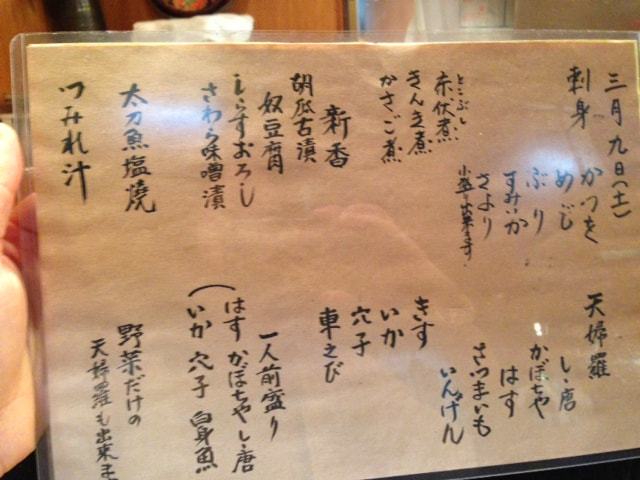 三月九日(土)
刺身
かつを
めじ
ぶり
すみいか
さより
小盛も出来ます
とこぶし
赤伏煮
きんき煮
かさご煮
新香
胡瓜古漬
奴豆腐
しらすおろし
さわら味噌漬
太刀魚塩焼
つみれ汁
天婦羅
しゝ唐
かぼちや
はす
さつまいも
いんげん
きす
いか
穴子
車えび
一人前盛り
(はす かぼちや しゝ唐
いか 穴子 白身魚
野菜だけの
天婦羅も出来ま